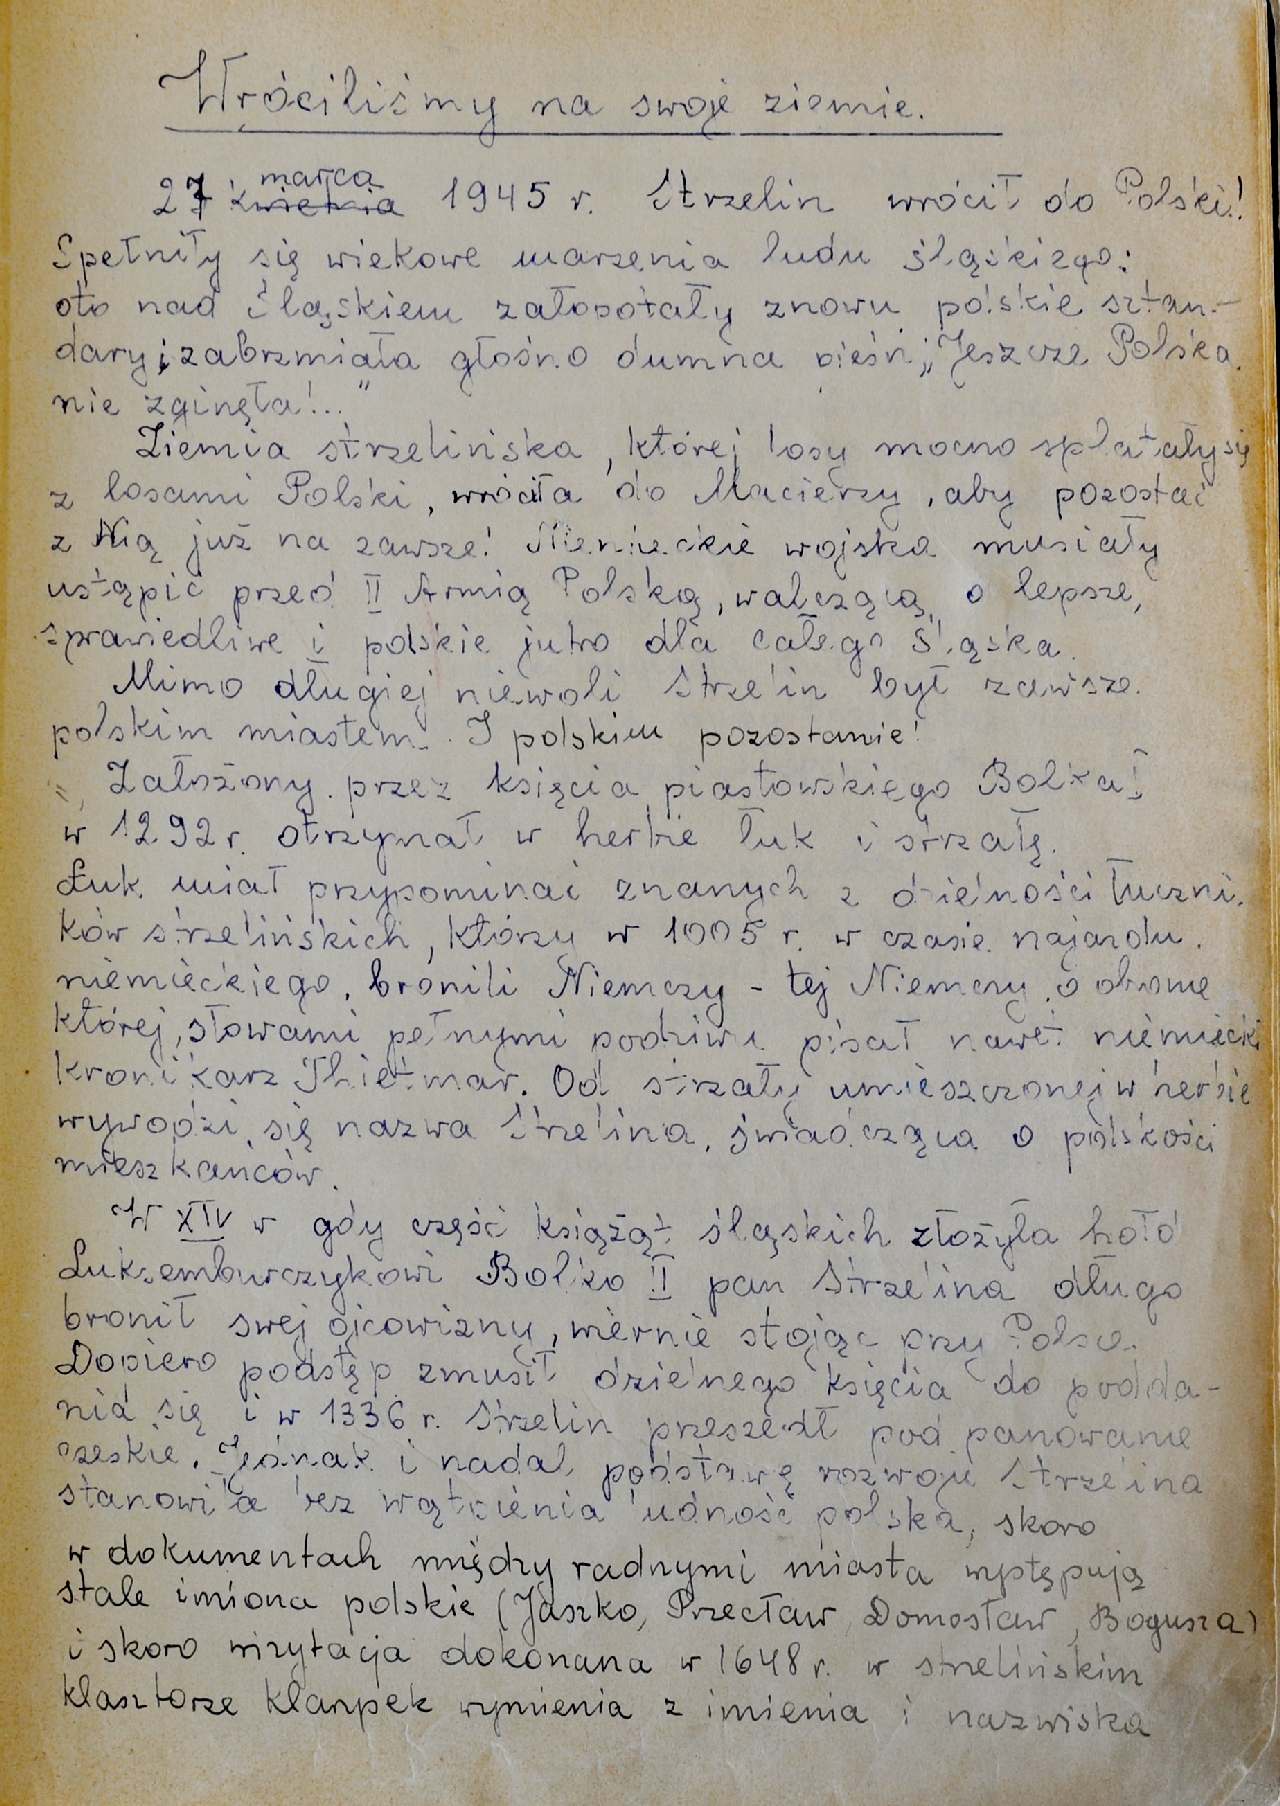 Wróciliśmy na swoje ziemie.
marca
27 kwietnia 1945 r. Strzelin wrócił do Polski!
Spełniły się wiekowe marzenia ludu śląskiego:
oto nad Śląskiem załopotały znowu polskie sztan-
dary i zabrzmiała głośno dumna pieśń; „Jeszcze Polska
nie zginęła!..."
Ziemia strzelińska, której losy mocno splatały się
z losami Polski, wróciła do Macierzy, aby pozostać
z Nią już na zawsze! Niemieckie wojska musiały
ustąpić przed II Armią Polską, walczącą o lepsze,
sprawiedliwe i polskie jutro dla całego Śląska.
Mimo długiej niewoli Strzelin był zawsze
polskim miastem. I polskim pozostanie!
Założony przez księcia piastowskiego Bolka I
w 1292 r. otrzymał w herbie łuk i strzałę.
Łuk miał przypominać znanych z dzielności łuczni-
ków strzelińskich, którzy w 1005 r. w czasie najazdu
niemieckiego, bronili Niemczy - tej Niemczy, o obronie
której, słowami pełnymi podziwu pisał nawet niemiecki
kronikarz Thietmar. Od strzały umieszczonej w herbie
wywodzi się nazwa Strzelina, świadcząca o polskości
mieszkańców.
W XIV w gdy część książąt śląskich złożyła hołd
Luksemburczykowi Bolko II pan Strzelina długo
bronił swej ojcowizny, wiernie stojąc przy Polsce.
Dopiero podstęp zmusił dzielnego księcia do podda-
nia się i w 1336 r. Strzelin przeszedł pod panowanie
czeskie. Jednak i nadal podstawę rozwoju Strzelina
stanowiła bez wątpienia ludność polska, skoro
w dokumentach między radnymi miasta występują
stale imiona polskie (Jaszko, Przecław, Domosław, Bogusza)
i skoro wizytacja dokonana w 1648 r. w strzelińskim
klasztorze klarysek wymienia z imienia i nazwiska